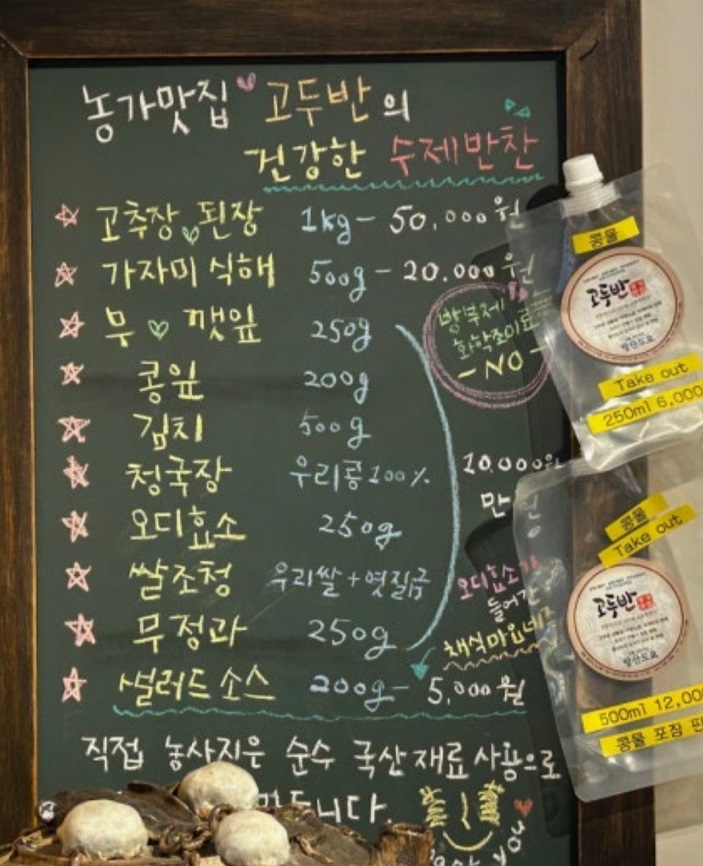 농가맛집 고두반의
건강한 수제반찬
고추장 된장 1kg - 50,000원
가자미 식해 500g - 20.000원
무 깻잎 250g
콩잎 200g
김치 500g
청국장 우리콩 100%
오디효소 250g
쌀조청 우리쌀 + 엿질금
무정과 250g
샐러드 소스 200g - 5,000원
방부제
화학조미료
- NO -
10,000원
만원
오디효소가
들어간
채식마요네즈
직접 농사지은 순수 국산 재료 사용으로
만듭니다.
콩물
고두반
Take out
250ml 6,000
콩물
Take out
고두반
500ml 12,00
콩물 포장 판